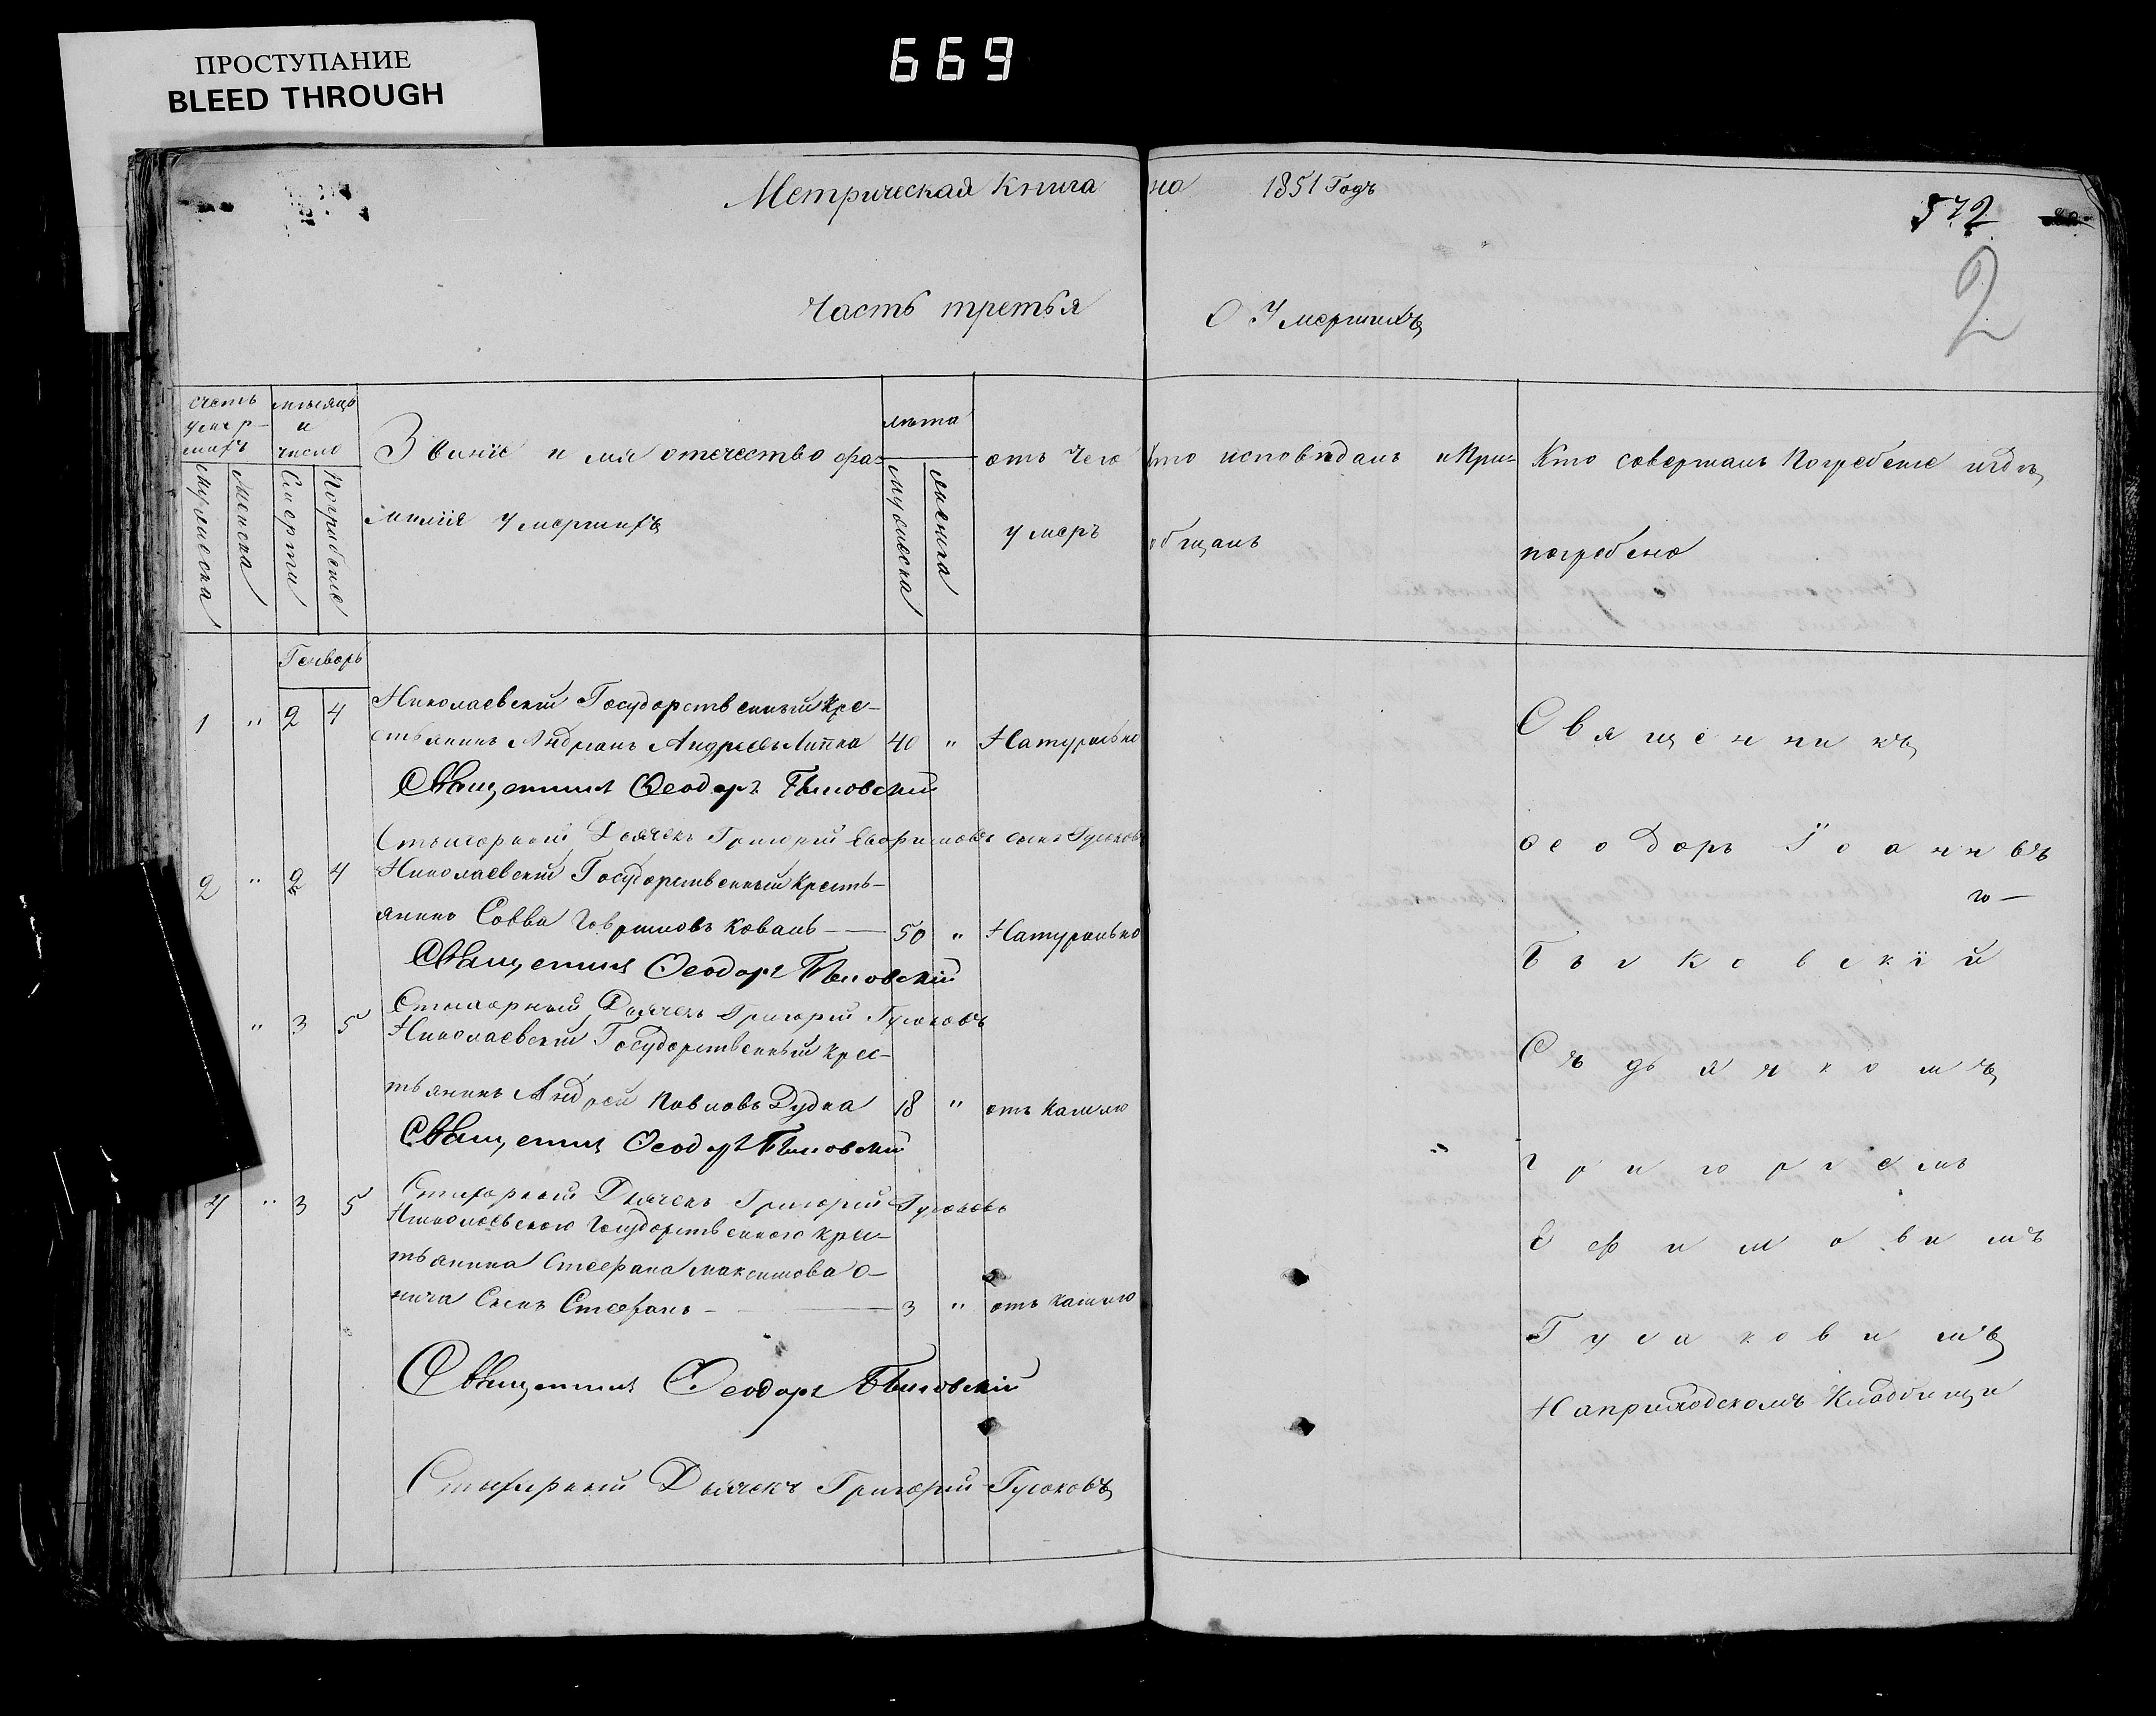 ПРОСТУПАНИЕ
BLEED THROUGH
669
Метрическая Книга на 1851 Годъ
572
2
Часть третья О Умершихъ
счетъ умер-шихъ
мужеска
женска
месяцъ и число
Смерти
Погребение
Званіе и мя отечество фа-
милія умершихъ
лета
мужеска
женска
отъ чего
умеръ
Кто исповедалъ и При-
общалъ
Кто совершалъ Погребение и где
погребено
Генварь
1 " 2 4 Николаевский Государственный Кре-
стьянинъ Андрианъ Андреевъ Липка 40 " Натурально
Священникъ Феодоръ Быковский
Стихарный Дьячекъ Григорий Евфимовъ сынъ Гусаковъ
2 " 2 4 Николаевский Государственный Кресть-
янинъ Савва Гавриловъ Коваль 50 " Натурально
Священникъ Феодоръ Быковский
Стихарный Дьячекъ Григорий Гусаковъ
" 3 5 Николаевский Государственный Крес-
тьянинъ Андрей Павловъ Дудка 18 " отъ Кашлю
Священникъ Феодоръ Быковский
Стихарный Дьячекъ Григорий Гусаковъ
4 " 3 5 Николаевского Государственного Крес-
тьянина Стефана Максимова О-
нича Сынъ Стефанъ 3 " отъ Кашлю
Священникъ Феодоръ Быковскій
Стихарный Дьячекъ Григорий Гусаковъ
Священникъ
Феодоръ Іоанновъ
Быковскій
Съ дьячкомъ
Григориемъ
Ефимовимъ
Гусаковимъ
На приходскомъ Кладбищи